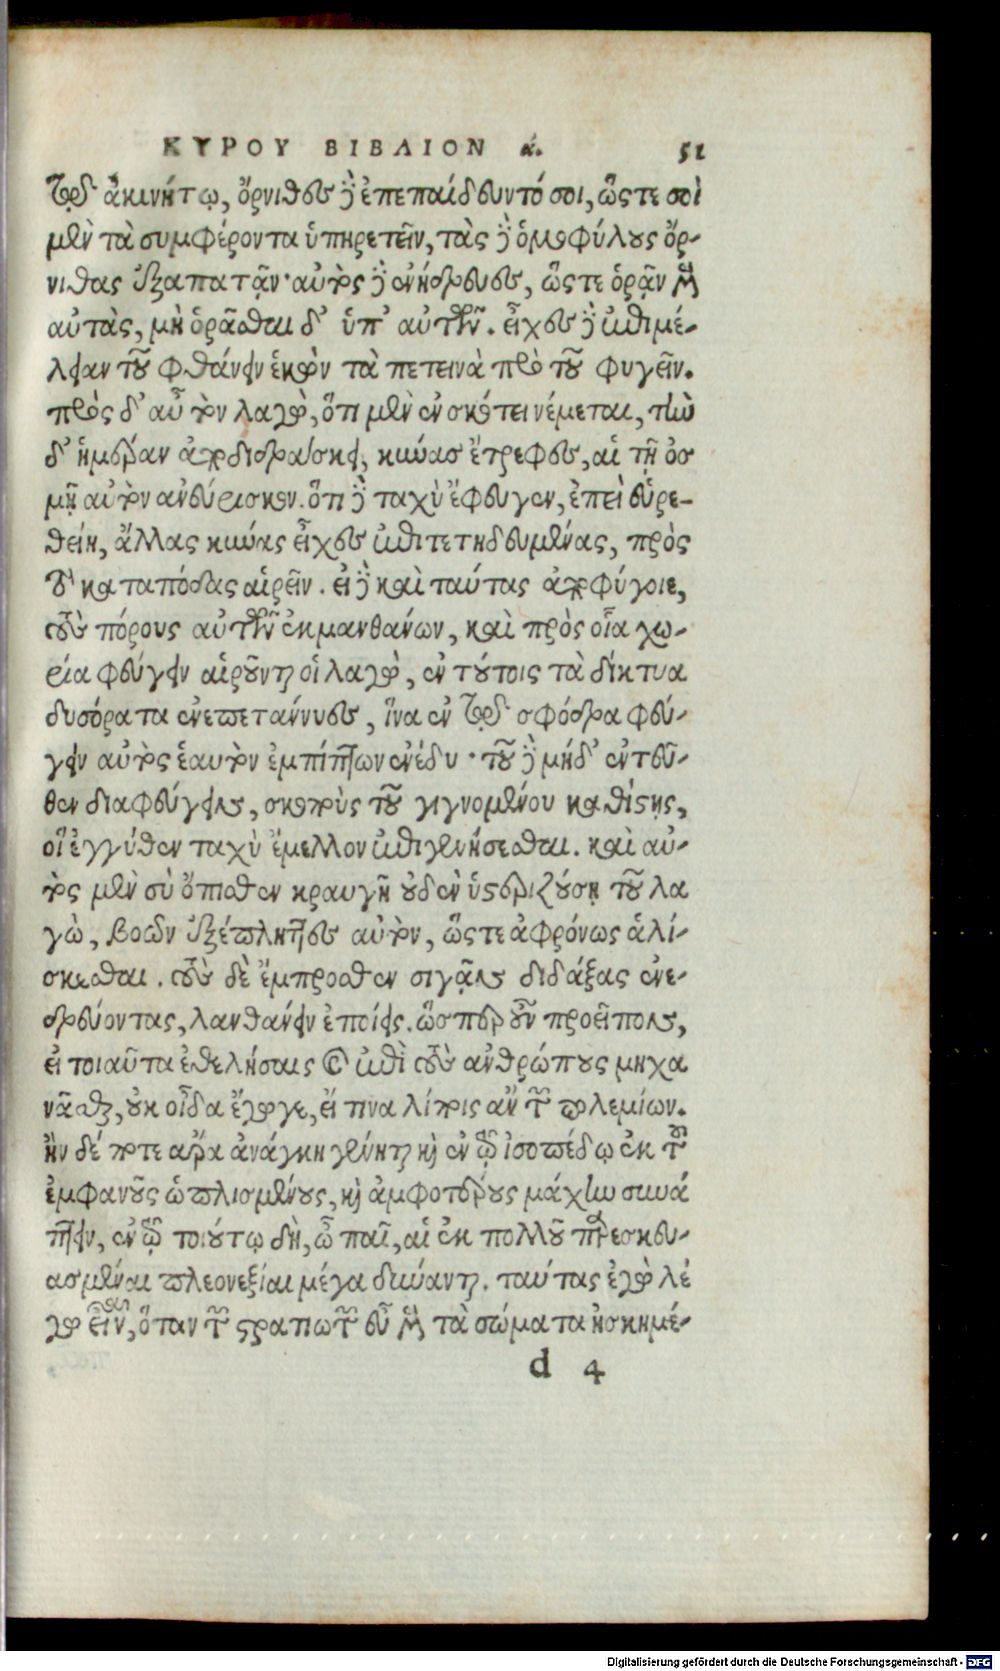 ΚΥΡΟΥ ΒΙΒΛΙΟΝ ά. 51
τῷδ' ἀκινήτῳ, ὄρνιθες δὲ ἐπεπαίδευντό σοι, ὥςτε σοὶ
μὲν τὰ συμφέροντα ὑπηρετεῖν, τὰς δὲ ὁμοφύλους ὄρ-
νιθας ἐξαπατᾷν· αὐτὸς δὲ ἐνήδρευες, ὥςτε ὁρᾷν μὲν
αὐτὰς, μὴ ὁρᾶσθαι δ' ὑπ' αὐτῶν. εἶχες δὲ ἐπιμέ-
λειαν τοῦ φθάνειν ἑκὼν τὰ πετεινὰ πρὸ τοῦ φυγεῖν.
πρὸς δ' αὖ τὸν λαγὼ, ὅτι μὲν ἐν σκότει νέμεται, τὴν
δ' ἡμέραν ἀποδιδράσκει, κύνας ἔτρεφες, αἳ τῇ ὀσ
μῇ αὐτὸν ἀνεύρισκον. ὅτι δὲ ταχὺ ἔφευγεν, ἐπεὶ εὑρε-
θείη, ἄλλας κύνας εἶχες ἐπιτετηδευμένας, πρὸς
τὸ καταπόδας αἱρεῖν. εἰ δὲ καὶ ταύτας ἀποφύγοιε,
τοὺς πόρους αὐτῶν ἐκμανθάνων, καὶ πρὸς οἷα χω-
ρία φεύγειν αἱροῦνται οἱ λαγὼ, ἐν τούτοις τὰ δίκτυα
δυσόρατα ἐνεπετάννυες, ἵνα ἐν τῷδ' σφόδρα φεύ-
γειν αὐτὸς ἑαυτὸν ἐμπίπτων ἐνέδυ· τοῦ δὲ μήδ' ἐντεῦ-
θεν διαφεύγειν, σκοποὺς τοῦ γιγνομένου καθίστης,
οἳ ἐγγύθεν ταχὺ ἔμελλον ἐπιγενήσεσθαι. καὶ αὐ-
τὸς μὲν σὺ ὄπισθεν κραυγῇ οὐδὲν ὑστεριζούσῃ τοῦ λα
γὼ, βοῶν ἐξέπληττες αὐτὸν, ὥςτε ἀφρόνως ἁλί-
σκεσθαι. τοὺς δὲ ἔμπροσθεν σιγᾷν διδάξας ἐνε-
δρεύοντας, λανθάνειν ἐποίεις. ὥσπερ οὖν προεῖπον,
εἰ τοιαῦτα ἐθελήσαις καὶ ἐπὶ τοὺς ἀνθρώπους μηχα
νᾶσθαι, οὐκ οἶδα ἔγωγε, εἴ τινα λίποις ἂν τῶν πολεμίων.
ἢν δέ ποτε ἄρα ἀνάγκη γένηται καὶ ἐν τῷ ἰσοπέδῳ ἐκ τοῦ
ἐμφανοῦς ὡπλισμένους, καὶ ἀμφοτέρους μάχην συνά
πτειν, ἐν τῷ τοιούτῳ δὴ, ὦ παῖ, αἱ ἐκ πολλοῦ παρεσκευ-
ασμέναι πλεονεξίαι μέγα δύνανται. ταύτας ἐγὼ λέ
γω εἶναι, ὅταν τῶν στρατιωτῶν εὖ μὲν τὰ σώματα ἠσκημέ-
d 4
Digitalisierung gefördert durch die Deutsche Forschungsgemeinschaft - DFG